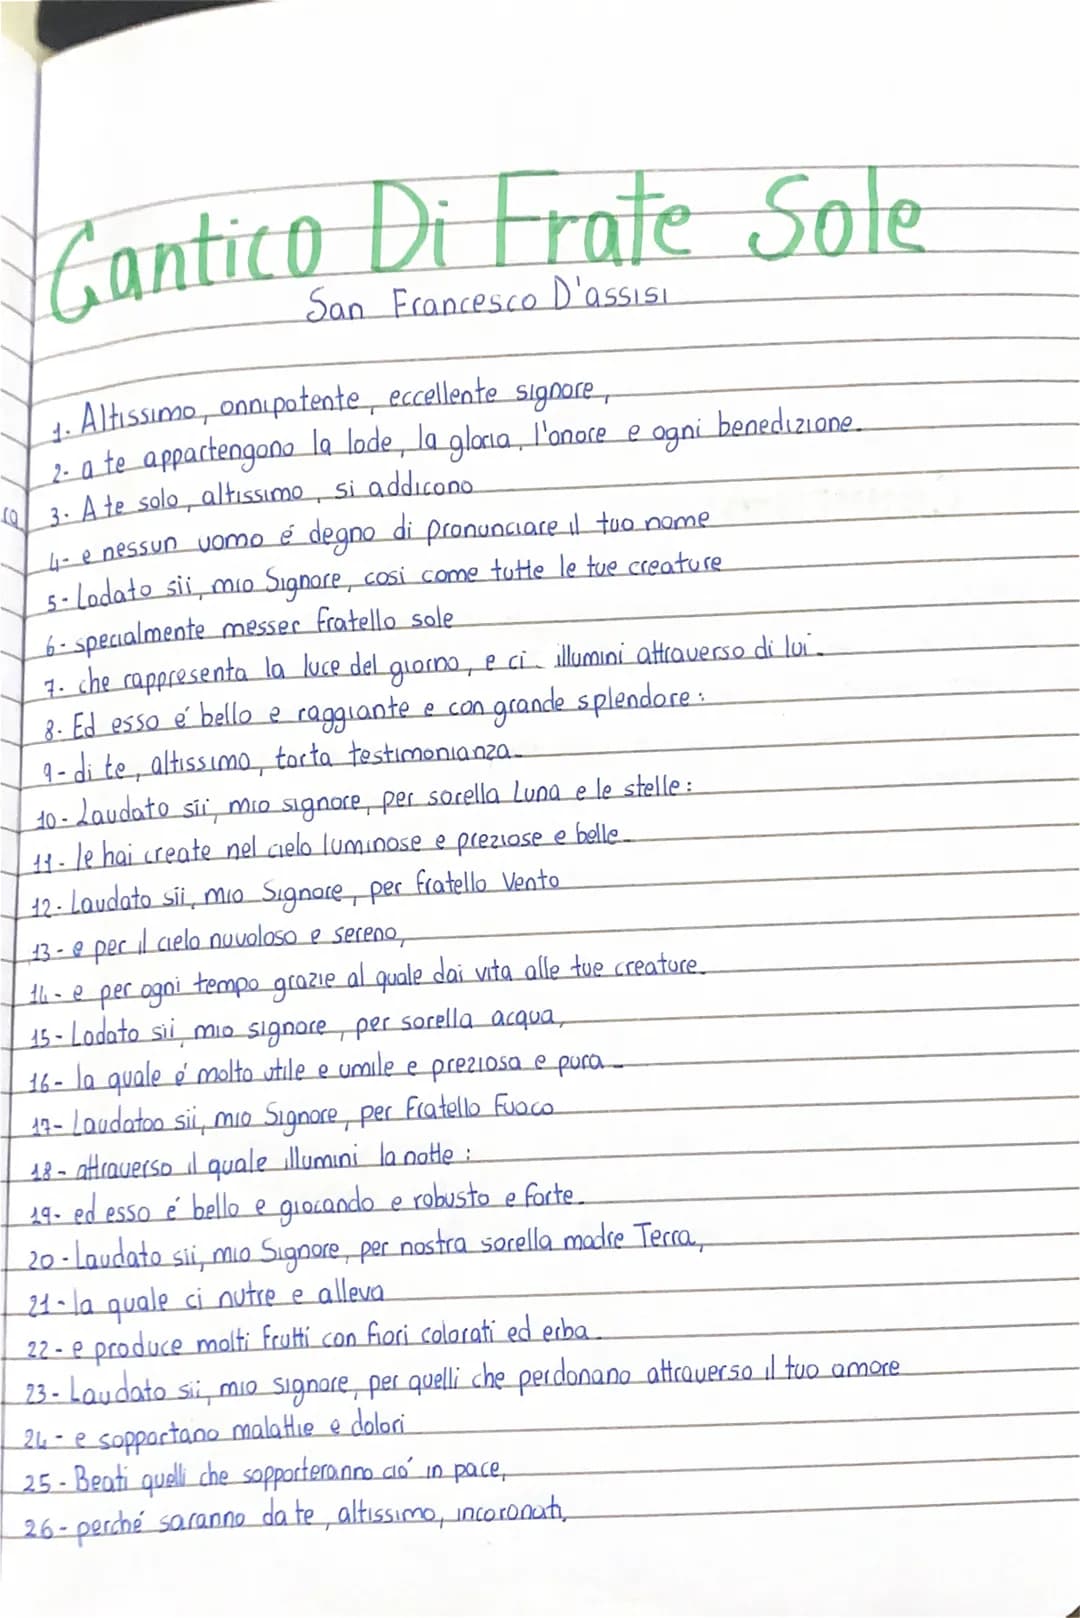 Cantico Di Frate Sole
San Francesco D'assisi
1. Altissimo, onnipotente, eccellente signore,
2- a te appartengono la lode, la gloria, l'onore e ogni benedizione.
3. A te solo, altissimo, si addicono
4- e nessun uomo é degno di pronunciare il tuo nome
5- Lodato sii, mio Signore, cosi come tutte le tue creature
6- specialmente messer fratello sole
7. che rappresenta la luce del giorno, e ci illumini attraverso di lui.
8. Ed esso é bello e raggiante e con grande splendore:
9- di te, altissimo, torta testimonianza.
10- Laudato sii, mio signore, per sorella Luna e le stelle:
11- le hai create nel cielo luminose e preziose e belle.
12. Laudato sii, mio Signore, per fratello Vento
13- e per il cielo nuvoloso e sereno,
14- e per ogni tempo grazie al quale dai vita alle tue creature.
15- Lodato sii, mio signore, per sorella acqua,
16- la quale é molto utile e umile e preziosa e pura.
17- Laudatoo sii, mio Signore, per Fratello Fuoco
18- attraverso il quale illumini la notte:
19- ed esso é bello e giocando e robusto e forte.
20- Laudato sii, mio Signore, per nostra sorella madre Terra,
21- la quale ci nutre e alleva
22- e produce molti frutti con fiori colorati ed erba.
23- Laudato sii, mio signore, per quelli che perdonano attraverso il tuo amore
24- e sopportano malattie e dolori
25- Beati quelli che sopporteranno ció in pace,
26- perché saranno da te, altissimo, incoronati,